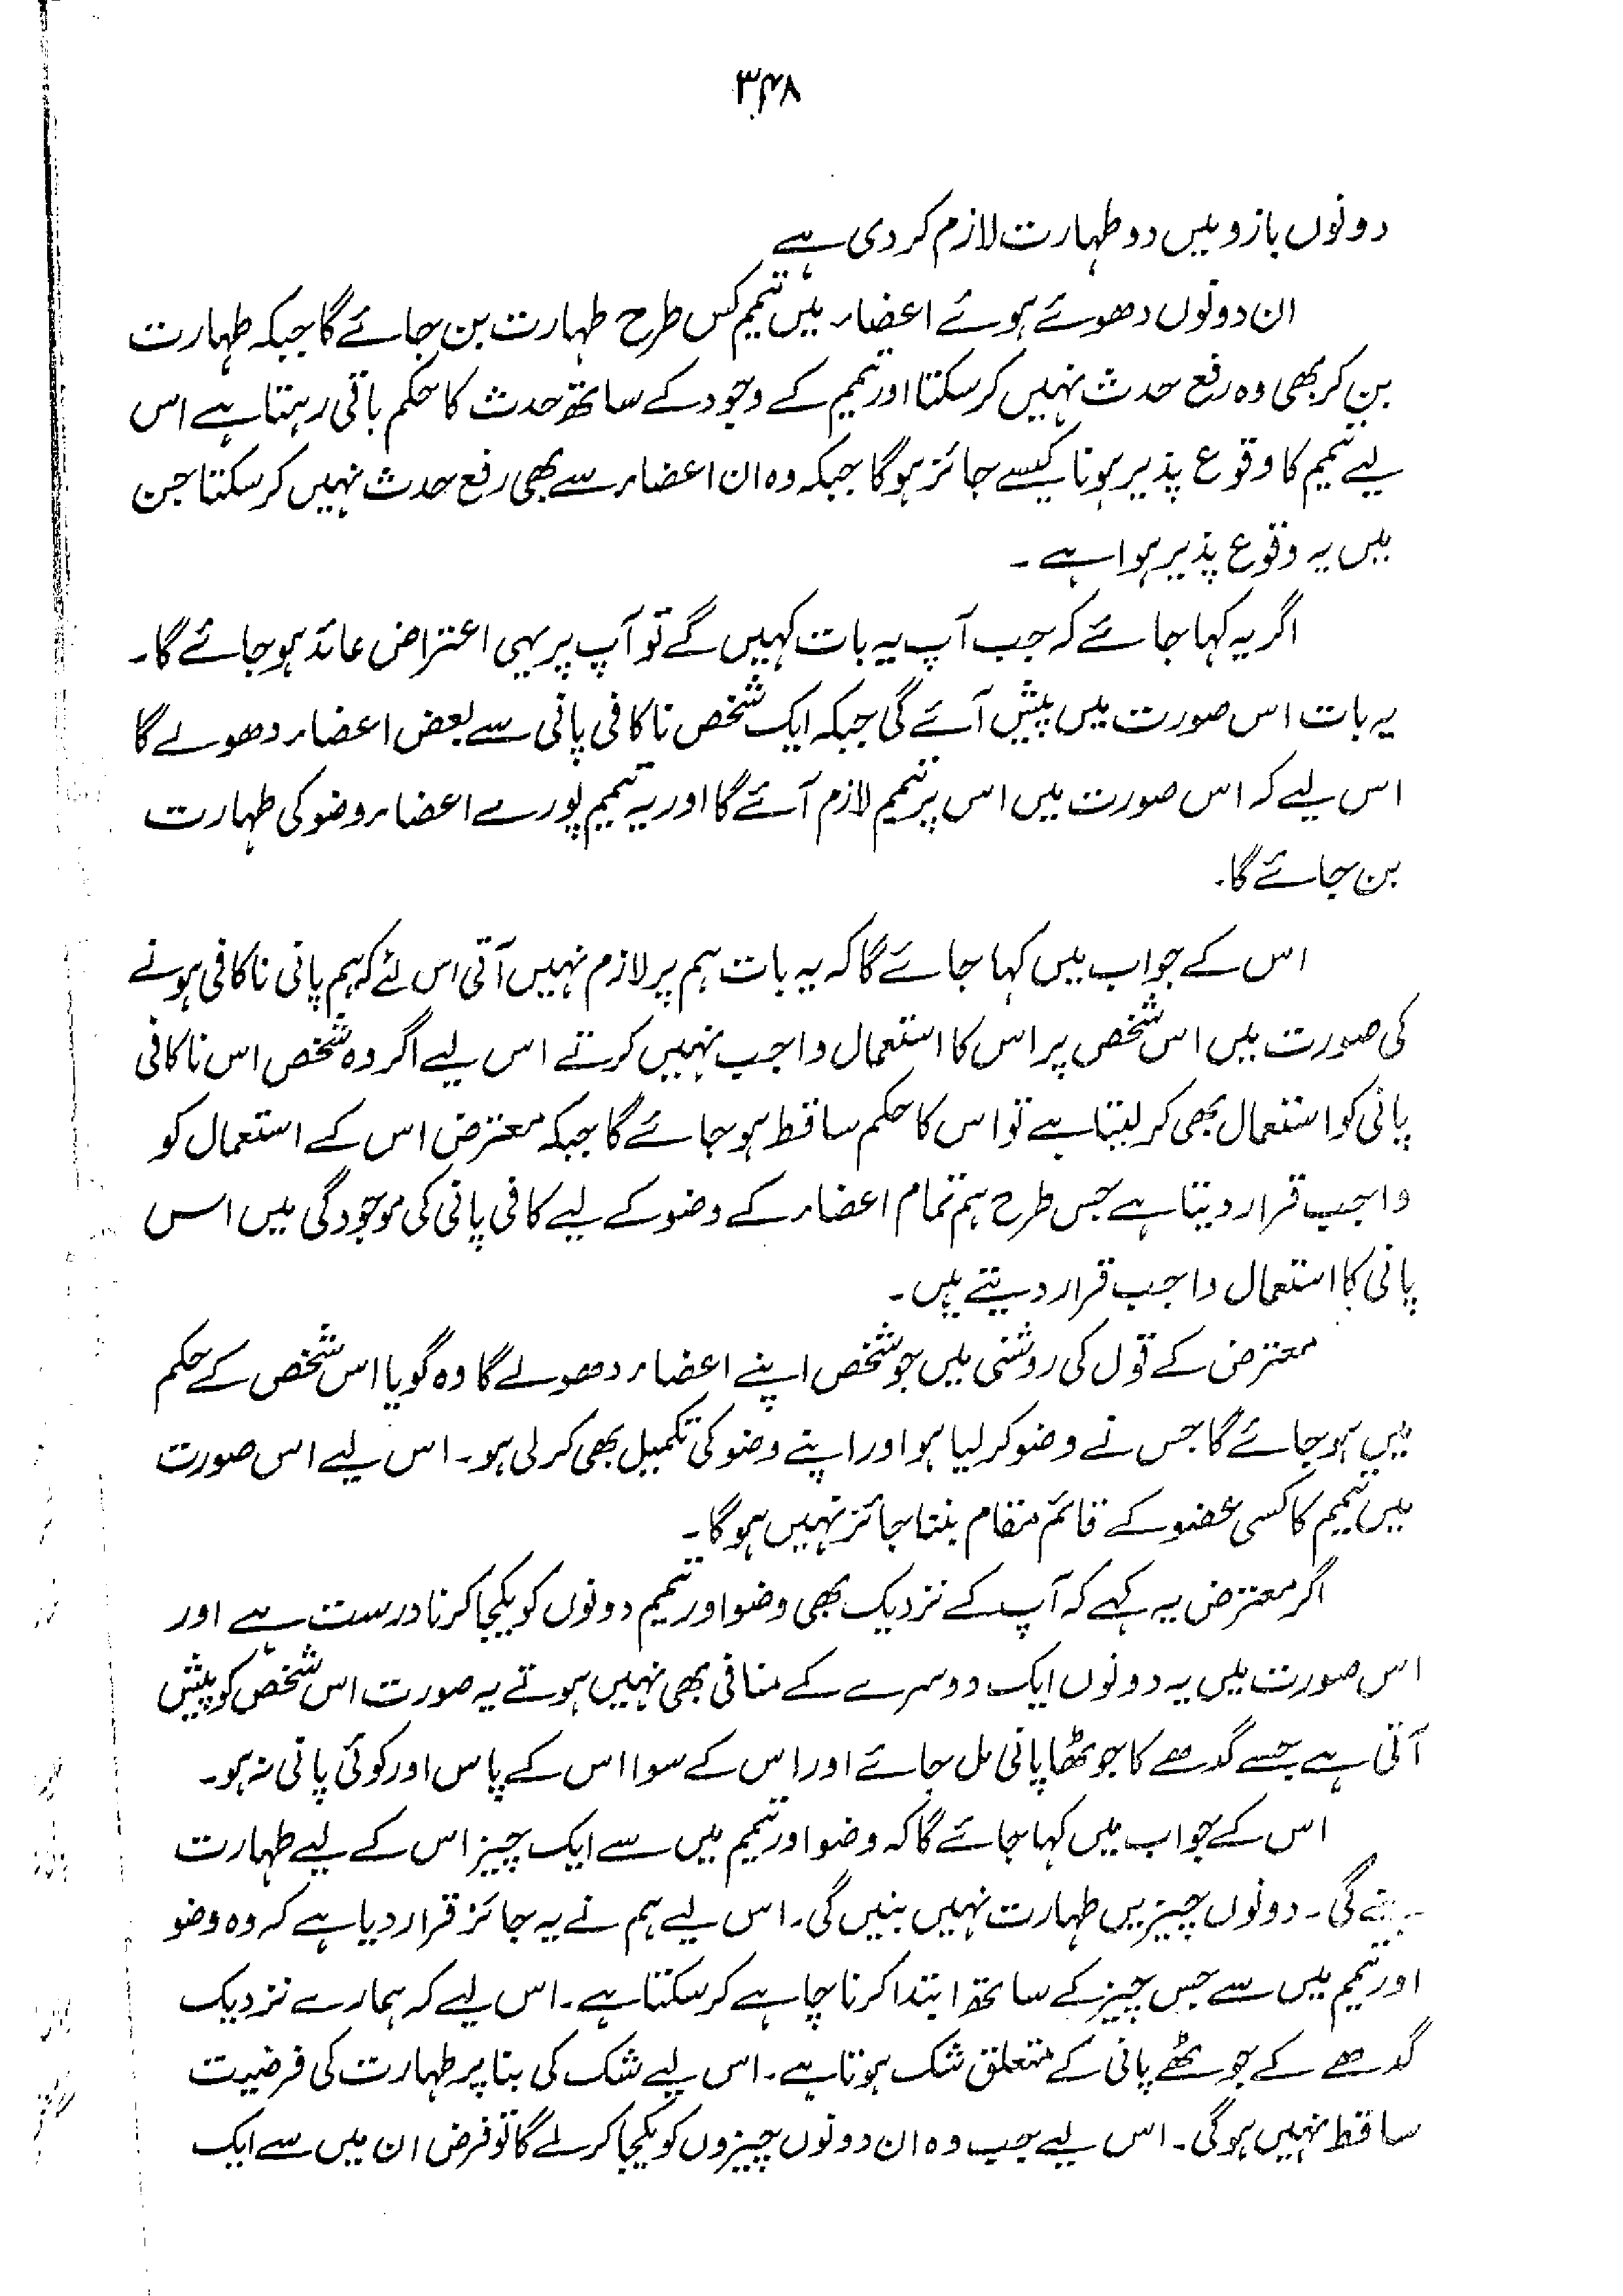 ۳۴۸
دونوں بازو میں دو طہارت لازم کر دی ہے
ان دونوں دھوئے ہوئے اعضاء میں تیمم کس طرح طہارت بن جائے گا جبکہ طہارت
بن کر بھی وہ رفع حدث نہیں کر سکتا اور تیمم کے وجود کے ساتھ حدث کا حکم باقی رہتا ہے اس
لیے تیمم کا وقوع پذیر ہونا کیسے جائز ہوگا جبکہ وہ ان اعضاء سے بھی رفع حدث نہیں کر سکتا جن
میں یہ وقوع پذیر ہوا ہے ۔
اگر یہ کہا جائے کہ جب آپ یہ بات کہیں گے تو آپ پر یہی اعتراض عائد ہو جائے گا۔
یہ بات اس صورت میں پیش آئے گی جبکہ ایک شخص ناکافی پانی سے بعض اعضاء دھولے گا
اس لیے کہ اس صورت میں اس پر تیمم لازم آئے گا اور یہ تیمم پورے اعضاء وضو کی طہارت
بن جائے گا۔
اس کے جواب میں کہا جائے گا کہ یہ بات ہم پر لازم نہیں آتی اس لئے کہ ہم پانی ناکافی ہونے
کی صورت میں اس شخص پر اس کا استعمال واجب نہیں کرتے اس لیے اگر وہ شخص اس ناکافی
پانی کو استعمال بھی کر لیتا ہے تو اس کا حکم ساقط ہو جائے گا جبکہ معترض اس کے استعمال کو
واجب قرار دیتا ہے جس طرح ہم تمام اعضاء کے وضو کے لیے کافی پانی کی موجودگی میں اس
پانی کا استعمال واجب قرار دیتے ہیں۔
معترض کے قول کی روشنی میں جو شخص اپنے اعضاء دھولے گا وہ گویا اس شخص کے حکم
میں ہو جائے گا جس نے وضو کر لیا ہو اور اپنے وضو کی تکمیل بھی کر لی ہو۔ اس لیے اس صورت
میں تیمم کا کسی عضو کے قائم مقام بننا جائز نہیں ہوگا۔
اگر معترض یہ کہے کہ آپ کے نزدیک بھی وضو اور تیمم دونوں کو یکجا کرنا درست ہے اور
اس صورت میں یہ دونوں ایک دوسرے کے منافی بھی نہیں ہوتے یہ صورت اس شخص کو پیش
آتی ہے جسے گدھے کا جوٹھا پانی مل جائے اور اس کے سوا اس کے پاس اور کوئی پانی نہ ہو۔
اس کے جواب میں کہا جائے گا کہ وضو اور تیمم میں سے ایک چیز اس کے لیے طہارت
بنے گی۔ دونوں چیزیں طہارت نہیں بنیں گی۔ اس لیے ہم نے یہ جائز قرار دیا ہے کہ وہ وضو
اور تیمم میں سے جس چیز کے ساتھ ابتدا کرنا چاہے کر سکتا ہے۔ اس لیے کہ ہمارے نزدیک
گدھے کے جوٹھے پانی کے متعلق شک ہوتا ہے۔ اس لیے شک کی بنا پر طہارت کی فرضیت
ساقط نہیں ہوگی۔ اس لیے جب وہ ان دونوں چیزوں کو یکجا کر لے گا تو فرض ان میں سے ایک